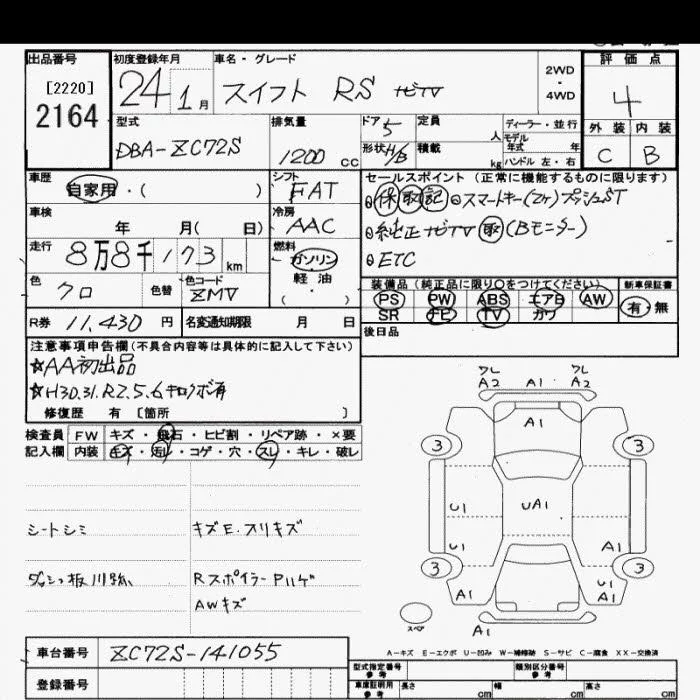 出品番号 初度登録年月 車名・グレード 評価点
[2220]
2164
24 1月
スイフト RS ナビTV
2WD
・
4WD
4
外装 内装
C B
型式 排気量 ドア 5 定員 人 ディーラー・並行
モデル年式 年
DBA-ZC72S 1200cc 形状 H/B 積載 kg ハンドル 左・右
車歴 自家用・( )
シフト FAT
セールスポイント (正常に機能するものに限ります)
保 取 記 スマートキー(2ヶ) プッシュST
純正ナビTV 取 (Bモニター)
ETC
車検 年 月( 日)
冷房 AAC
走行 8万8千173km
燃料 ガソリン
軽油
( ・ )
色 クロ 色替 色コード ZMV
装備品 (純正品に限り○をつけてください) 新車保証書
PS PW ABS エアB AW 有・無
SR ナビ TV カワ
R券 11,430円 名変通知期限 月 日
後日品
注意事項申告欄 (不具合内容等は具体的に記入して下さい)
☆AA初出品
☆H30.31.R2.5.6キロノボ有
修復歴 有 〔箇所 〕
検査員 FW キズ・飛石・ヒビ割・リペア跡・×要
記入欄 内装 キズ・汚レ・コゲ・穴・スレ・キレ・破レ
シートシミ キズE.スリキズ
RスポイラーPハゲ
AWキズ
ワレ ワレ
A2 A1 A2
A1
3 3
U1 UA1
U1 A1
3 3
U1
A1 A1
スペア
A1
A-キズ E-エクボ U-凹み W-補修跡 S-サビ C-腐食 XX-交換済
車台番号 ZC72S-141055
型式指定番号 参考 類別区分番号 参考
登録番号
車庫証明用 参考 長さ cm 幅 cm 高さ cm